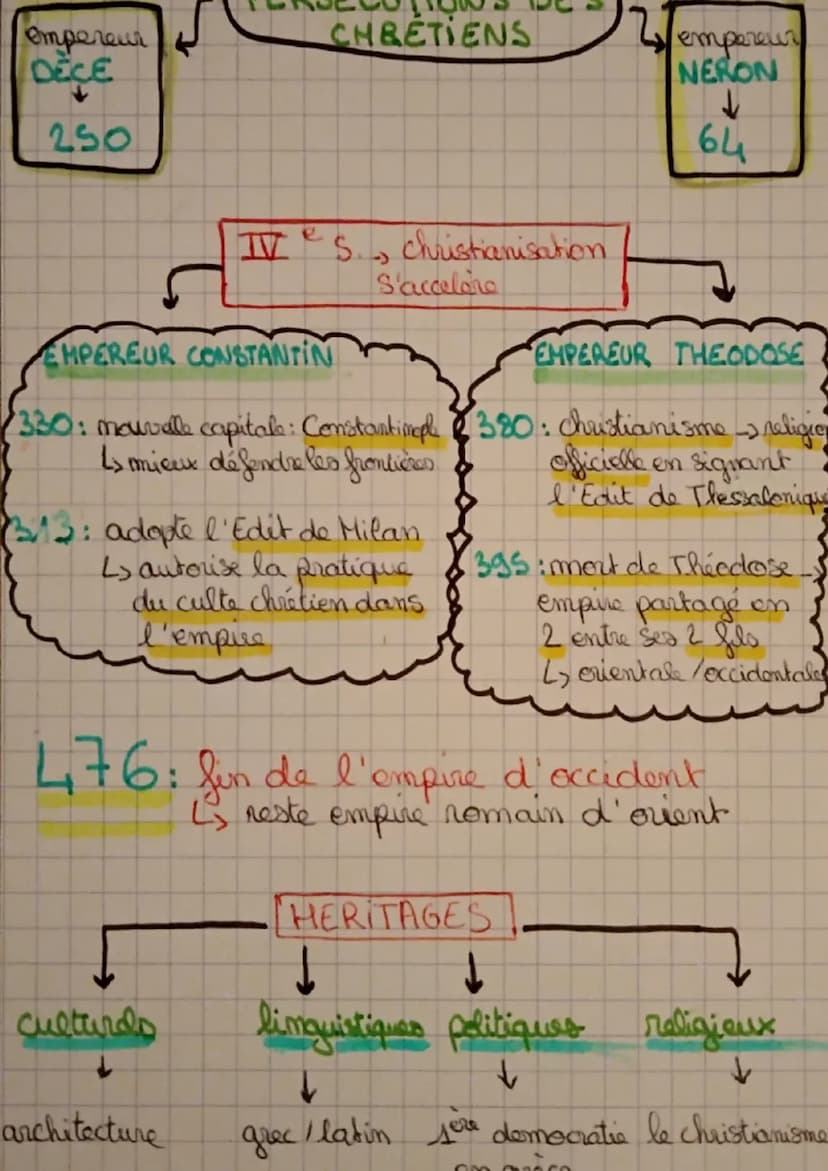 PERSECUTIONS DES
CHRÉTIENS
empereur
DÈCE
↓
250
empereur
NERON
↓
64
IVe S. → christianisation
s'accelère
EMPEREUR CONSTANTIN
330 : nouvelle capitale : Constantinople
↳ mieux défendre les frontières
313 : adopte l'Edit de Milan
↳ autorise la pratique
du culte chrétien dans
l'empire
EMPEREUR THEODOSE
380 : christianisme → religio
officielle en signant
l'Edit de Thessalonique
395 : mort de Théodose →
empire partagé en
2 entre ses 2 fils
↳ orientale / occidentale
476 : fin de l'empire d'occident
↳ reste empire romain d'orient
HERITAGES
culturels
linguistiques
politiques
religieux
architecture
grec / latin
1ère democratie
en grèce
le christianisme